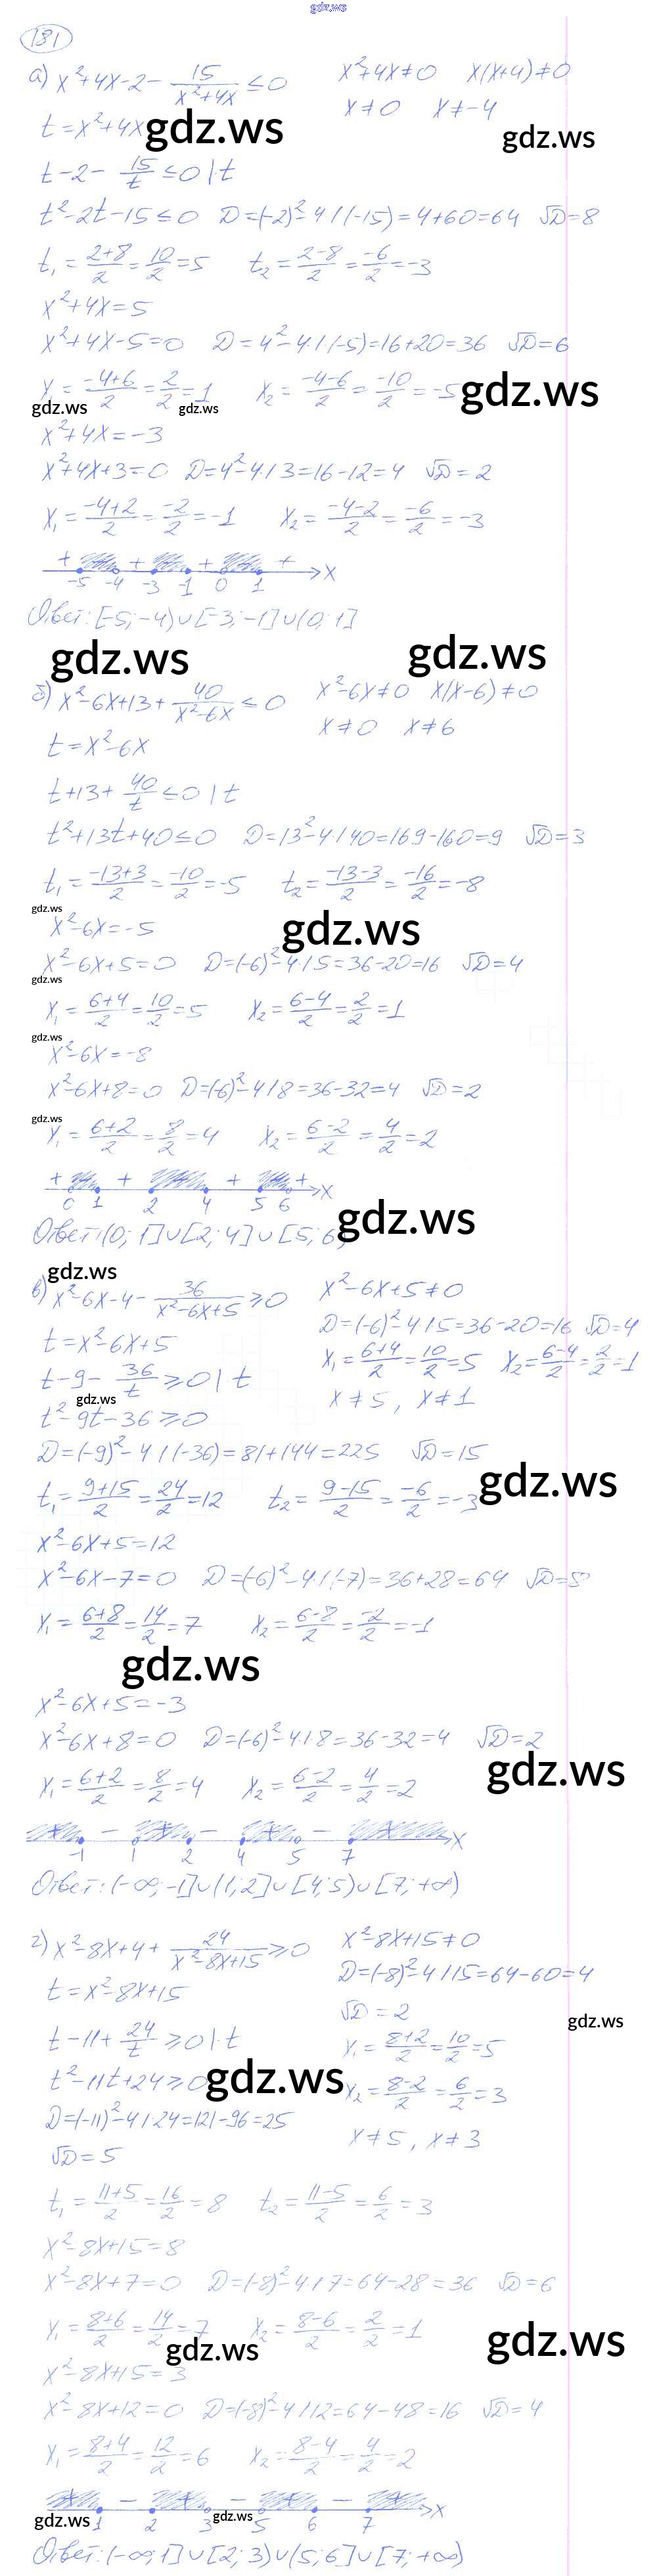 gdz.ws
181
а) x²+4x-2- 15/(x²+4x) ≤0   x²+4x≠0   x(x+4)≠0
t=x²+4x   x≠0   x≠-4
gdz.ws   gdz.ws
t-2- 15/t ≤0 |·t
t²-2t-15≤0   D=(-2)²-4·1·(-15)=4+60=64   √D=8
t₁= (2+8)/2 = 10/2 =5   t₂= (2-8)/2 = -6/2 =-3
x²+4x=5
x²+4x-5=0   D=4²-4·1·(-5)=16+20=36   √D=6
x₁= (-4+6)/2 = 2/2 =1   x₂= (-4-6)/2 = -10/2 =-5   gdz.ws
gdz.ws   gdz.ws
x²+4x=-3
x²+4x+3=0   D=4²-4·1·3=16-12=4   √D=2
x₁= (-4+2)/2 = -2/2 =-1   x₂= (-4-2)/2 = -6/2 =-3
+ + + + x
-5 -4 -3 -1 0 1
Ответ: [-5;-4)∪[-3;-1]∪(0;1]
gdz.ws   gdz.ws
б) x²-6x+13+ 40/(x²-6x) ≤0   x²-6x≠0   x(x-6)≠0
t=x²-6x   x≠0   x≠6
t+13+ 40/t ≤0 |·t
t²+13t+40≤0   D=13²-4·1·40=169-160=9   √D=3
t₁= (-13+3)/2 = -10/2 =-5   t₂= (-13-3)/2 = -16/2 =-8
gdz.ws   gdz.ws
x²-6x=-5
x²-6x+5=0   D=(-6)²-4·1·5=36-20=16   √D=4
gdz.ws
x₁= (6+4)/2 = 10/2 =5   x₂= (6-4)/2 = 2/2 =1
gdz.ws
x²-6x=-8
x²-6x+8=0   D=(-6)²-4·1·8=36-32=4   √D=2
gdz.ws
x₁= (6+2)/2 = 8/2 =4   x₂= (6-2)/2 = 4/2 =2
+ + + + x
0 1 2 4 5 6
Ответ: (0;1]∪[2;4]∪[5;6   gdz.ws
gdz.ws
в) x²-6x-4- 36/(x²-6x+5) ≥0   x²-6x+5≠0
t=x²-6x+5   D=(-6)²-4·1·5=36-20=16   √D=4
t-9- 36/t ≥0 |·t   x₁= (6+4)/2 = 10/2 =5   x₂= (6-4)/2 = 2/2 =1
gdz.ws   x≠5, x≠1
t²-9t-36≥0
D=(-9)²-4·1·(-36)=81+144=225   √D=15
t₁= (9+15)/2 = 24/2 =12   t₂= (9-15)/2 = -6/2 =-3   gdz.ws
x²-6x+5=12
x²-6x-7=0   D=(-6)²-4·1·(-7)=36+28=64   √D=8
x₁= (6+8)/2 = 14/2 =7   x₂= (6-8)/2 = -2/2 =-1
gdz.ws
x²-6x+5=-3
x²-6x+8=0   D=(-6)²-4·1·8=36-32=4   √D=2
x₁= (6+2)/2 = 8/2 =4   x₂= (6-2)/2 = 4/2 =2   gdz.ws
+ - + - + - + x
-1 1 2 4 5 7
Ответ: (-∞;-1]∪(1;2]∪[4;5)∪[7;+∞)
г) x²-8x+4+ 24/(x²-8x+15) ≥0   x²-8x+15≠0
t=x²-8x+15   D=(-8)²-4·1·15=64-60=4
√D=2   gdz.ws
t-11+ 24/t ≥0 |·t   x₁= (8+2)/2 = 10/2 =5
t²-11t+24≥0   gdz.ws   x₂= (8-2)/2 = 6/2 =3
D=(-11)²-4·1·24=121-96=25   x≠5, x≠3
√D=5
t₁= (11+5)/2 = 16/2 =8   t₂= (11-5)/2 = 6/2 =3
x²-8x+15=8
x²-8x+7=0   D=(-8)²-4·1·7=64-28=36   √D=6
x₁= (8+6)/2 = 14/2 =7   x₂= (8-6)/2 = 2/2 =1   gdz.ws
gdz.ws
x²-8x+15=3
x²-8x+12=0   D=(-8)²-4·1·12=64-48=16   √D=4
x₁= (8+4)/2 = 12/2 =6   x₂= (8-4)/2 = 4/2 =2
+ - + - + - + x
gdz.ws   gdz.ws
1 2 3 5 6 7
Ответ: (-∞;1]∪[2;3)∪(5;6]∪[7;+∞)